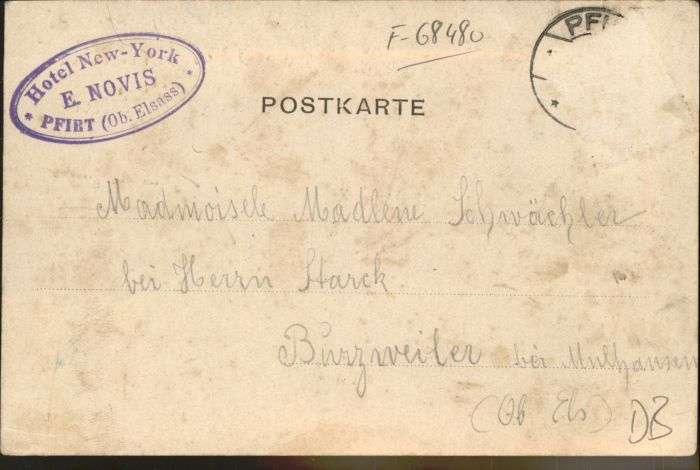 Hotel New-York
E. NOVIS
* PFIRT (Ob. Elsass) *
F-68480
PFI
POSTKARTE
Madmoisele Madlene Schwächler
bei Herrn Starck
Burzweiler bei Mulhausen
(Ob Els)
DB